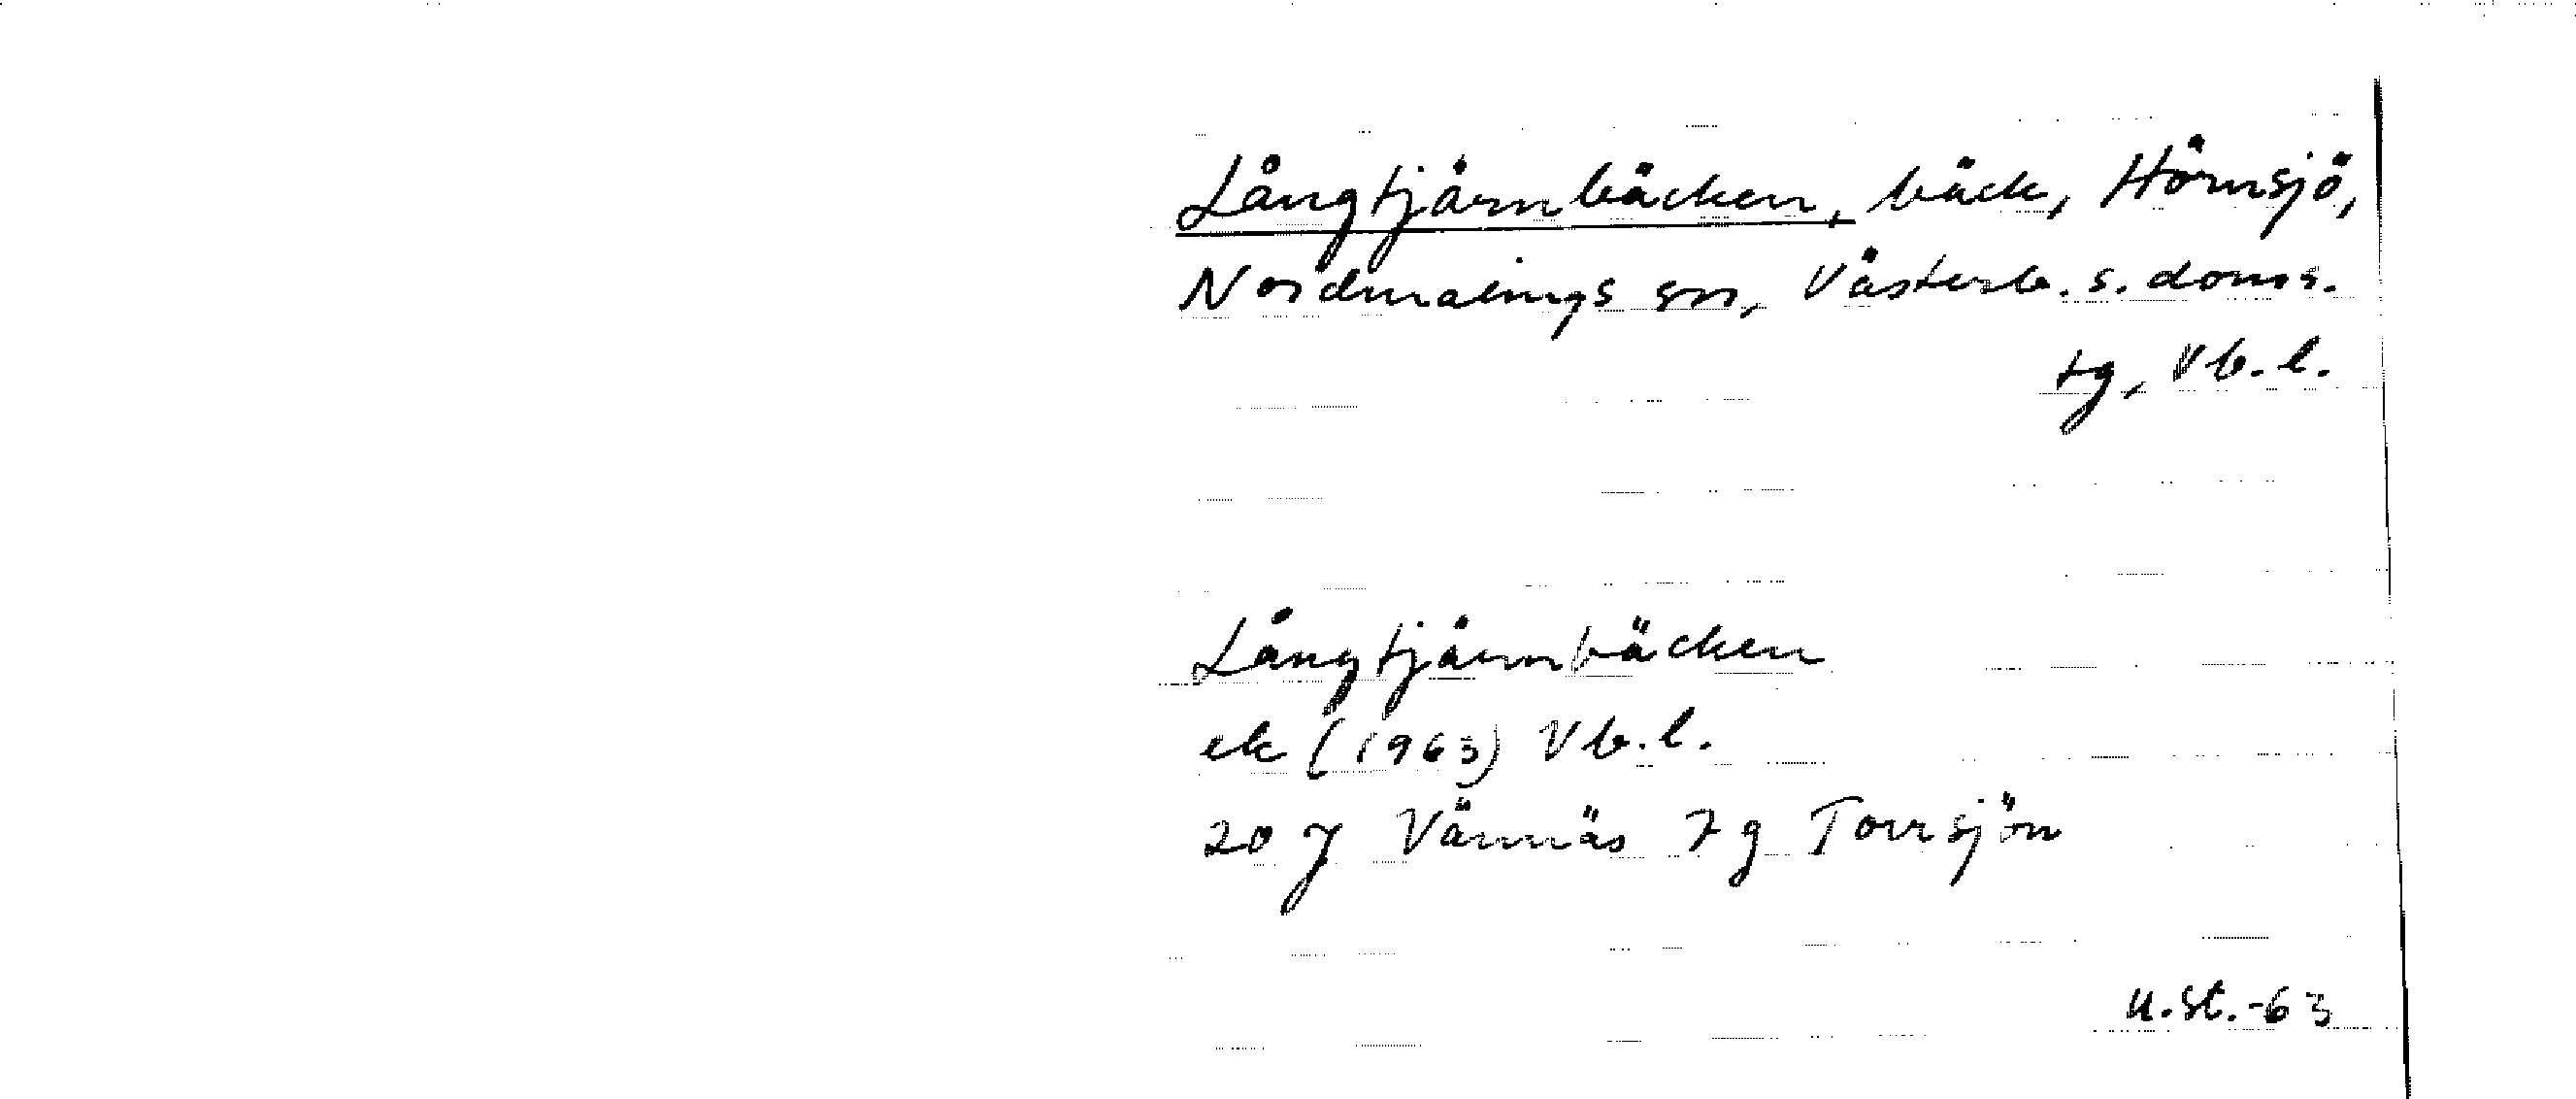 Långtjärnbäcken, bäck, Hörnsjö,
Nordmalings sn, Västerb. s. doms.
tg, Vb. l.
Långtjärnbäcken
ek (1963) Vb. l.
20 J Vännäs 7 g Torrsjön
u.st.-63